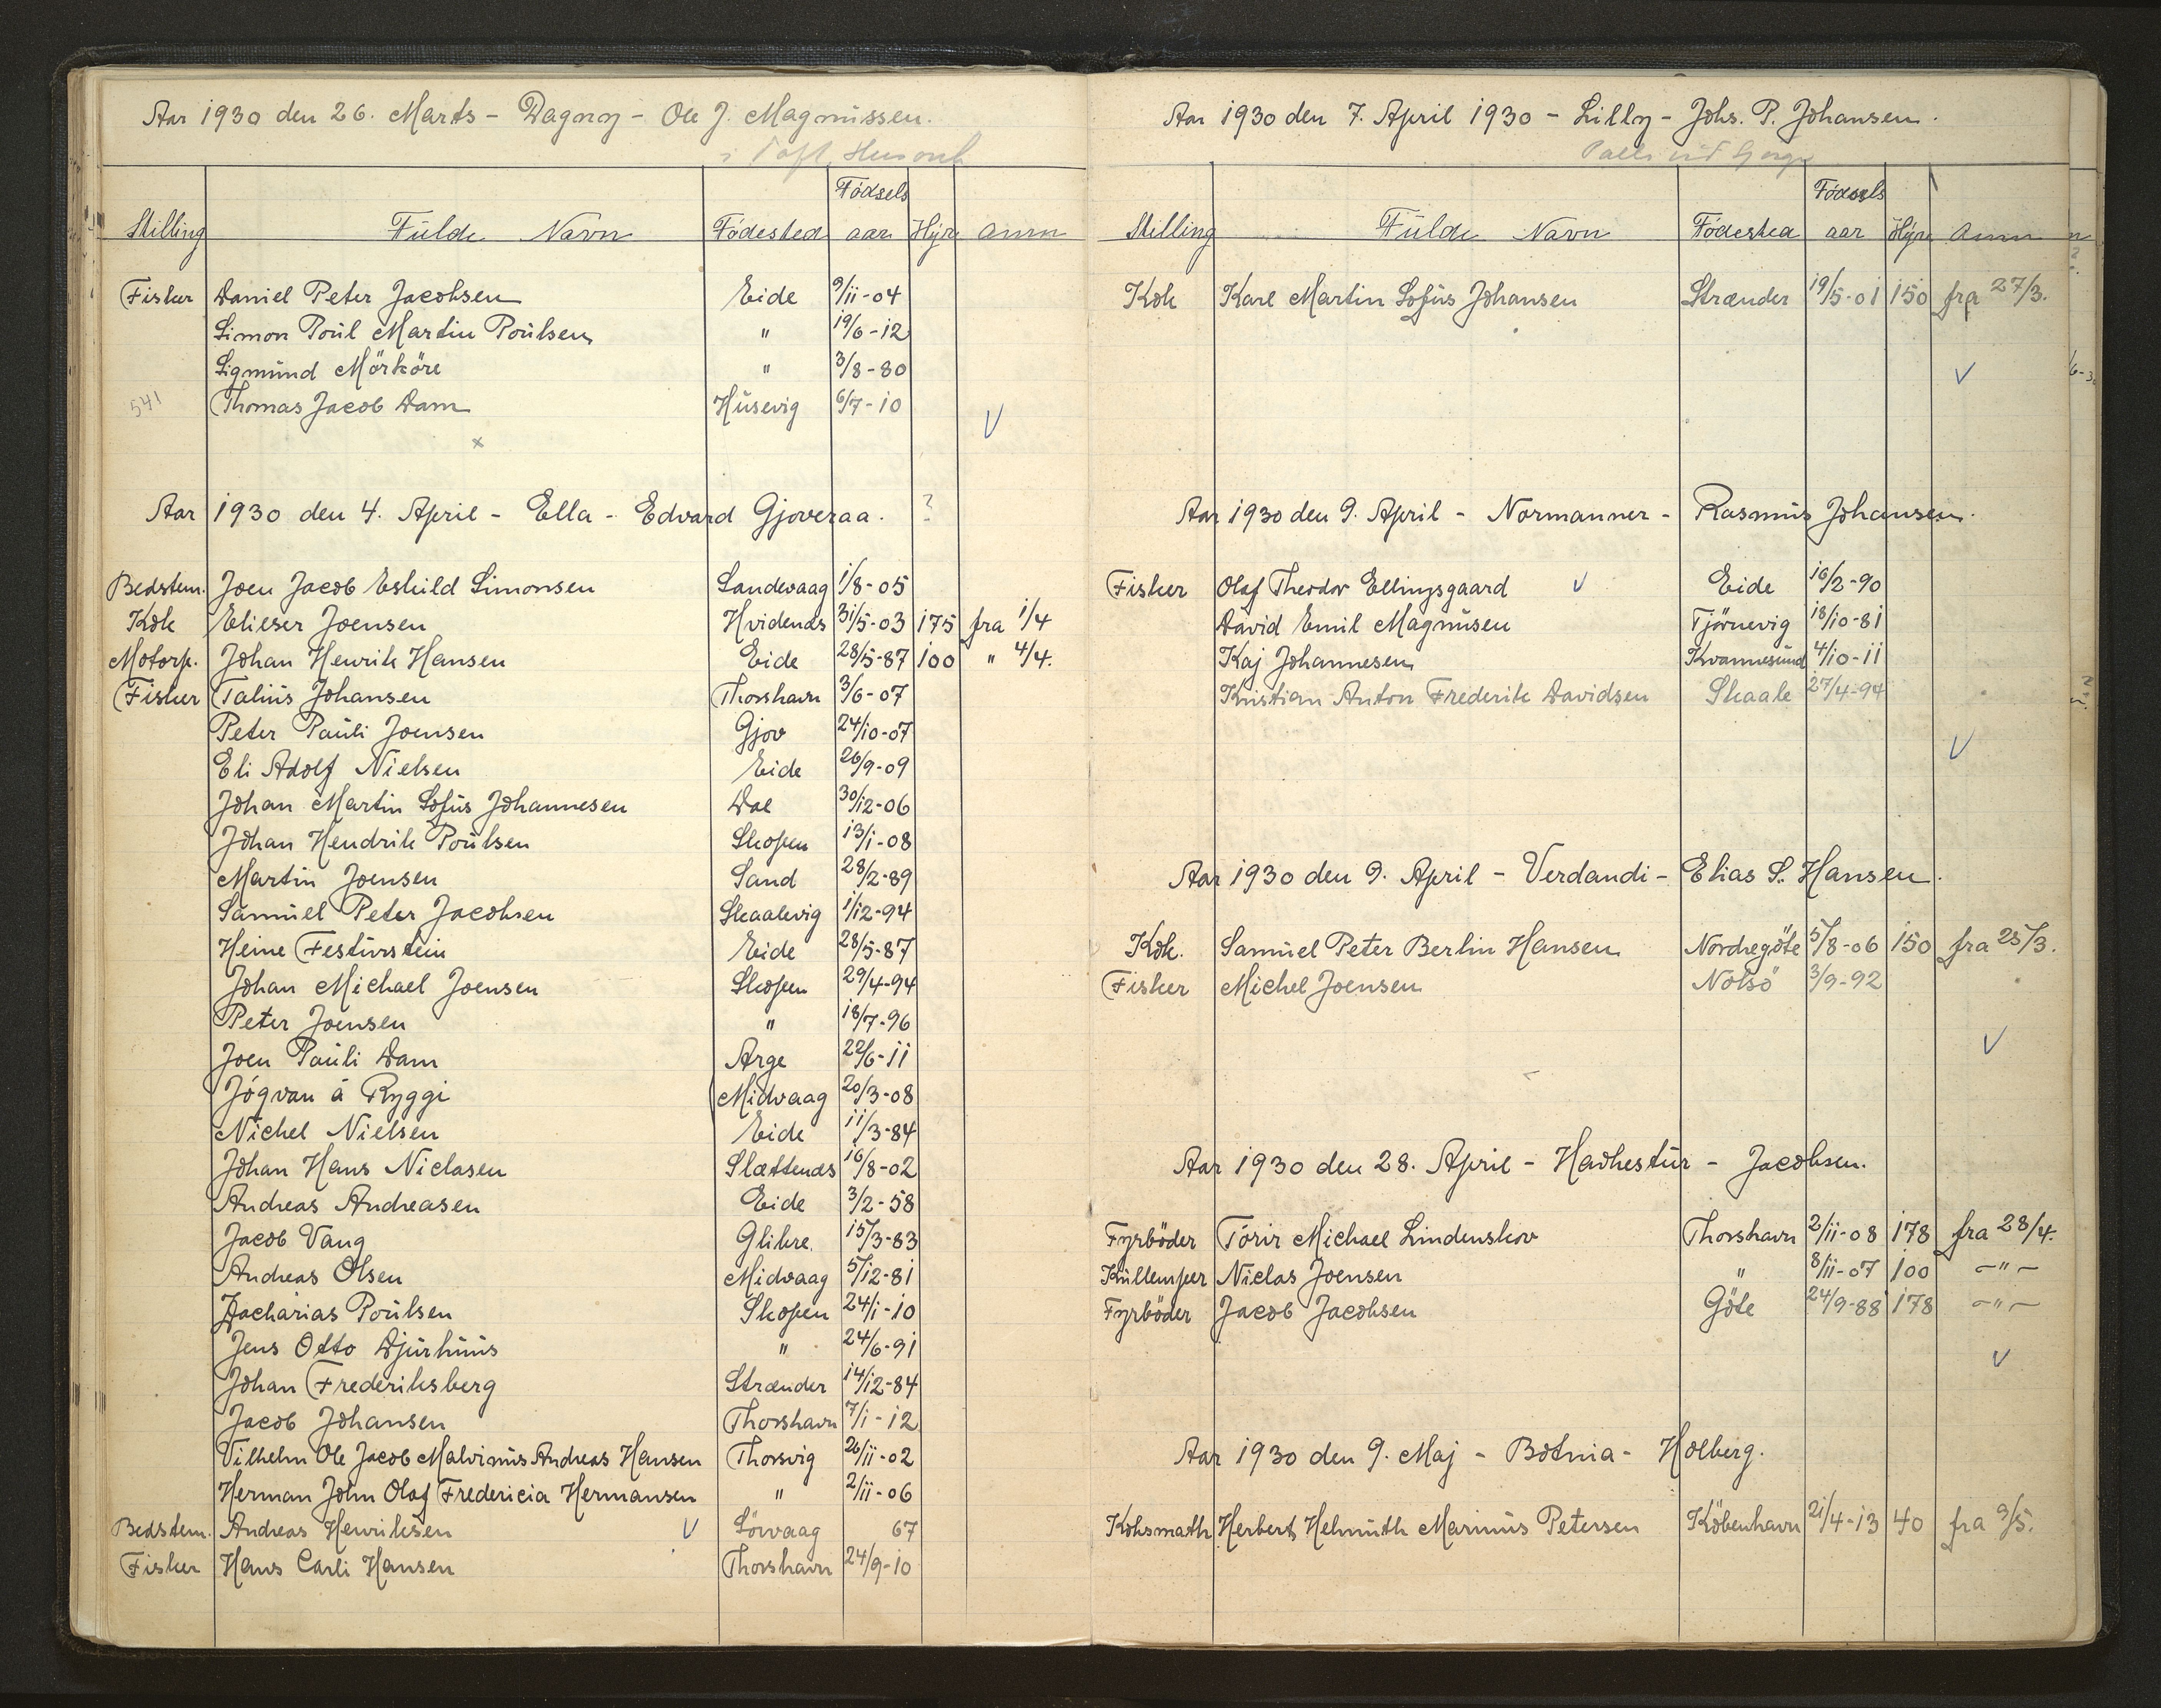 Aar 1930 den 26. Marts - Dagny - Ole J. Magnussen.
Stilling Fulde Navn Födested Födsels aar Hyre Anm
Fisker Daniel Peter Jacobsen Eide 9/11-04
Simon Poul Martin Poulsen " 19/6-12
Sigmund Mörköre " 3/8-80
541 Thomas Jacob Dam Husevig 6/7-10 V
x
Aar 1930 den 4. April - Ella - Edvard Gjoveraa. ?
Bedstem. Joen Jacob Eskild Simonsen Sandevaag 1/8-05
Kok Elieser Joensen Hvidenæs 31/5-03 175 fra 1/4
Motorp. Johan Henrik Hansen Eide 28/5-87 100 " 4/4.
Fisker Talius Johansen Thorshavn 3/6-07
Peter Pauli Joensen Gjov 24/10-07
Eli Adolf Nielsen Eide 26/9-09
Johan Martin Sofus Johannesen Dal 30/12-06
Johan Hendrik Poulsen Skopen 13/1-08
Martin Joensen Sand 28/2-89
Samuel Peter Jacobsen Skaalevig 1/12-94
Heine Festurstein Eide 28/5-87
Johan Michael Joensen Skopen 29/4-94
Peter Joensen " 18/7-96
Joen Pauli Dam Arge 22/6-11
Jógvan á Ryggi Midvaag 20/3-08
Nichel Nielsen Eide 11/3-84
Johan Hans Niclasen Slættenæs 16/8-02
Andreas Andreasen Eide 3/2-58
Jacob Vang Glibre 15/3-83
Andreas Olsen Midvaag 5/12-81
Zacharias Poulsen Skopen 24/1-10
Jens Otto Djurhuus " 24/6-91
Johan Frederiksberg Strænder 14/12-84
Jacob Johansen Thorshavn 7/1-12
Vilhelm Ole Jacob Malvinus Andreas Hansen Thorsvig 26/11-02
Herman John Olaf Fredericia Hermansen " 2/11-06
Bedstem. Andreas Henriksen V Sörvaag 67
Fisker Hans Carli Hansen Thorshavn 24/9-10
Aar 1930 den 7. April 1930 - Lilly - Johs. P. Johansen.
Stilling Fulde Navn Födested Födsels aar Hyre Anm
Kok Karl Martin Sofus Johansen Strænder 19/5-01 150 fra 27/3.
V
Aar 1930 den 9. April - Normanner - Rasmus Johansen.
Fisker Olaf Theodor Ellingsgaard V Eide 16/2-90
David Emil Magnusen Tjörnevig 18/10-81
Kaj Johannesen Kvannesund 4/10-11
Kristian Anton Frederik Davidsen Skaale 27/4-94
V
Aar 1930 den 9. April - Verdandi - Elias S. Hansen.
Kok. Samuel Peter Berlin Hansen Nordregöte 5/8-06 150 fra 25/3.
Fisker Michel Joensen Nolsö 3/9-92
V
Aar 1930 den 28. April - Havhestur - Jacobsen.
Fyrböder Tórir Michael Lindenskov Thorshavn 2/11-08 178 fra 28/4.
Kullemper Niclas Joensen " 8/11-07 100 -"-
Fyrböder Jacob Jacobsen Göte 24/9-88 178 -"-
V
Aar 1930 den 9. Maj - Botnia - Holberg.
Koksmath Herbert Helmuth Marinus Petersen Köbenhavn 21/4-13 40 fra 9/5.